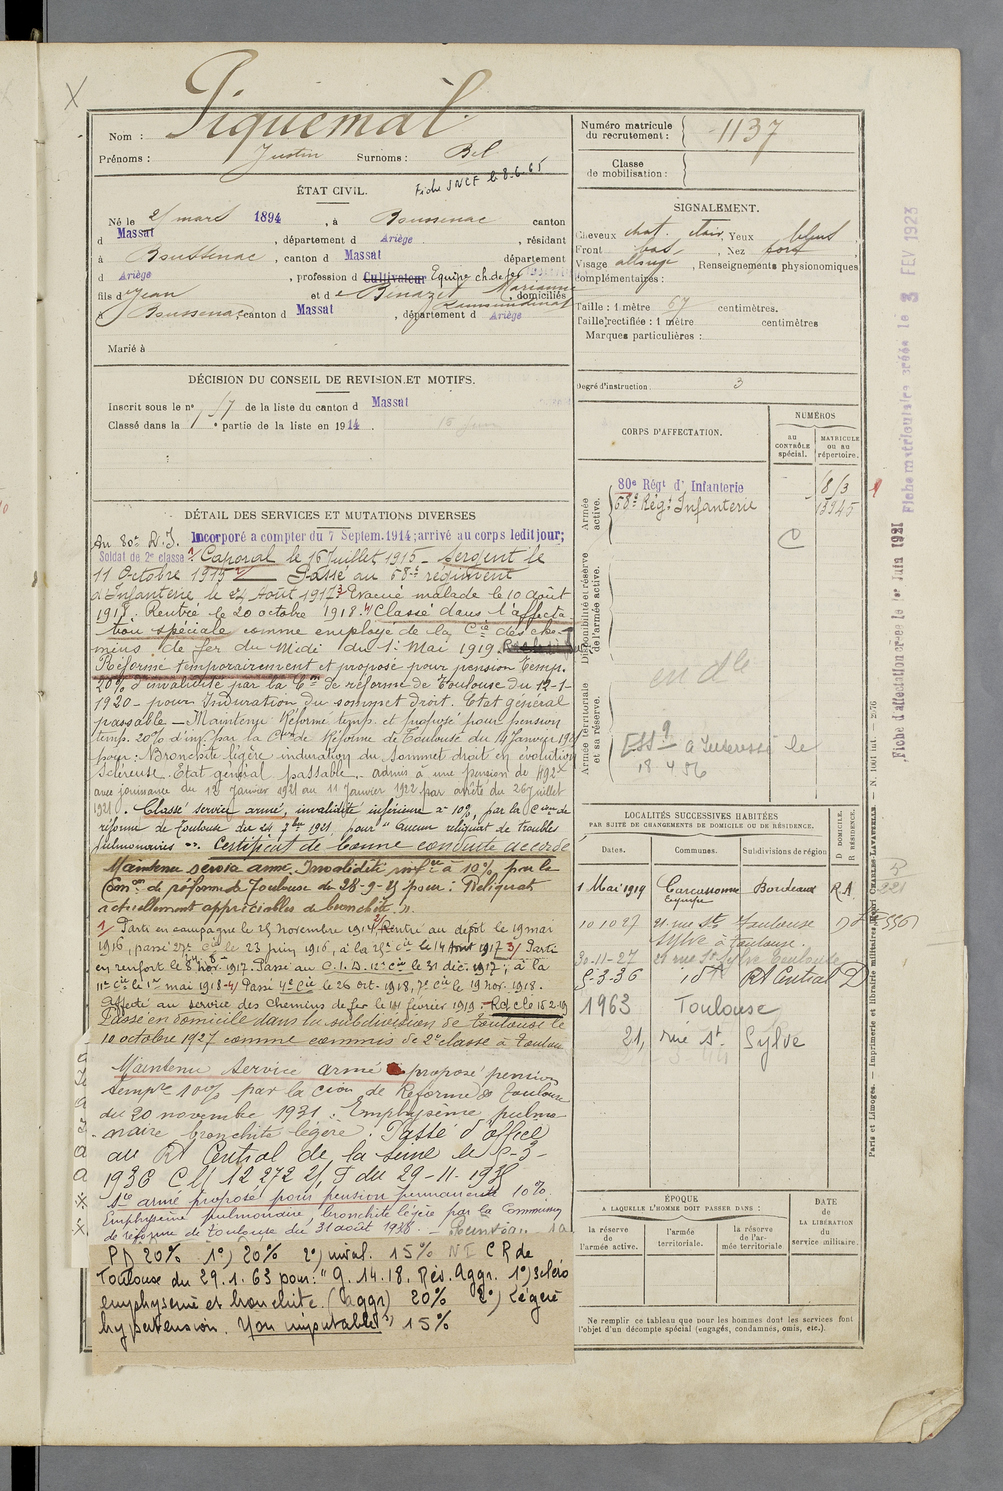 Piquemal
Nom :
Prénoms : Justin Surnoms : Bel
Fiche SNCF le 8.6.65
ÉTAT CIVIL.
Né le 21 mars 1894, à Boussenac canton
d Massat, département d Ariège, résidant
à Boussenac, canton d Massat département
d Ariège, profession d Cultivateur Equipe ch. de fer
fils d Jean et de Benazet Marianne, domiciliés
à Boussenac canton d Massat, département d Ariège
Marié à
DÉCISION DU CONSEIL DE REVISION ET MOTIFS.
Inscrit sous le n° 57 de la liste du canton d Massat
Classé dans la 1e partie de la liste en 1914.
DÉTAIL DES SERVICES ET MUTATIONS DIVERSES
Au 80e R.I. Incorporé a compter du 7 Septem. 1914; arrivé au corps ledit jour;
Soldat de 2e classe 1/ Caporal le 16 Juillet 1915 - Sergent le
11 Octobre 1915 2/ Passé au 68e régiment
d'Infanterie le 24 Août 1917 3/ Evacué malade le 10 août
1918. Rentré le 20 octobre 1918. 4/ Classé dans l'affecta
tion spéciale comme employé de la Cie des che-
mins de fer du Midi du 1er Mai 1919.
Réformé temporairement et proposé pour pension temp.
20% d'invalidité par la Con de réforme de Toulouse du 12-1-
1920 - pour Induration du sommet droit. Etat général
passable - Maintenu Réformé temp. et proposé pour pension
temp. 20% d'inv. par la Con de Réforme de Toulouse du 14 Janvier 1921
pour : Bronchite légère induration du Sommet droit en évolution
scléreuse. Etat général passable. - admis à une pension de 492f
avec jouissance du 12 Janvier 1921 au 11 Janvier 1922 par arrêté du 26 juillet
1921. Classé service armé, invalidité inférieure à 10%, par la Cion de
réforme de Toulouse du 24 7bre 1921 pour "aucun reliquat de troubles
pulmonaires". Certificat de bonne conduite accordé
Maintenu service armé. Invalidité infre à 10% par la
Con de réforme de Toulouse du 28-9-21 pour : Reliquat
actuellement appréciables de bronchite ".
1/ Parti en campagne le 25 novembre 1914 2/ Rentré au dépôt le 19 mai
1916, passé 27e Cie le 23 juin 1916, à la 25e Cie le 14 Aout 1917 3/ Parti
en renfort le 8 nov. 1917. Passé au C.I.D. 12e Cie le 31 déc. 1917; à la
11e Cie le 1er mai 1918 4/ Passé 4e Cie le 26 oct. 1918, 7e Cie le 19 nov. 1918.
Affecté au service des Chemins de fer le 14 février 1919. Rd c le 15 2-19
Passé en domicile dans la subdivision de Toulouse le
10 octobre 1927 comme commis de 2e classe à Toulouse
Maintenu service armé proposé pension
tempre 10% par la Cion de Réforme de Toulouse
du 20 novembre 1931 : Emphysème pulmo
naire bronchite légère. Passé d'office
au Rt Central de la Seine le 5-3-
1936 C M 12 272 2/I du 29-11-1935
Sce armé proposé pour pension permanente 10%
Emphysème pulmonaire, bronchite légère par la Commission
de réforme de Toulouse du 31 août 1938
PD 20% 1°) 20% 2°) inval. 15% NI CR de
Toulouse du 29.1.63 pour : "G. 14.18. Rés. Aggr. 1°) scléro
emphysème et bronchite. (aggr) 20% 2°) Légère
hypertension. Non imputable 15%
Numéro matricule
du recrutement : 1137
Classe
de mobilisation :
SIGNALEMENT.
Cheveux chat. clair, Yeux bleus
Front bas, Nez fort
Visage allongé, Renseignements physionomiques
complémentaires :
Taille : 1 mètre 67 centimètres.
Taille rectifiée : 1 mètre centimètres
Marques particulières :
Degré d'instruction. 3
CORPS D'AFFECTATION.
NUMÉROS
AU
CONTRÔLE
spécial.
MATRICULE
ou au
répertoire.
Armée
active.
80e Régt d' Infanterie
68e Régt Infanterie
13945
Disponibilité et réserve
de l'armée active.
Armée territoriale
et sa réserve.
18 4 56
LOCALITÉS SUCCESSIVES HABITÉES
PAR SUITE DE CHANGEMENTS DE DOMICILE OU DE RÉSIDENCE.
Dates. Communes. Subdivisions de région
D DOMICILE.
R RÉSIDENCE.
1 Mai 1919 Carcassonne Bordeaux RA
10 10 27 21 rue St Toulouse D
Sylve à Toulouse.
30-11-27 21 rue St Sylve Toulouse
5-3-36 id Rt Central D
1963 Toulouse
21, rue St. Sylve
ÉPOQUE
A LAQUELLE L'HOMME DOIT PASSER DANS :
la réserve
de
l'armée active.
l'armée
territoriale.
la réserve
de l'ar-
mée territoriale
DATE
de
LA LIBÉRATION
du
service militaire.
Ne remplir ce tableau que pour les hommes dont les services font
l'objet d'un décompte spécial (engagés, condamnés, omis, etc.).
Fiche matriculaire créée le 3 FEV 1923
Fiche d'affectation créée le 1er Juin 1921
Paris et Limoges. — Imprimerie et librairie militaires Henri CHARLES-LAVAUZELLE.